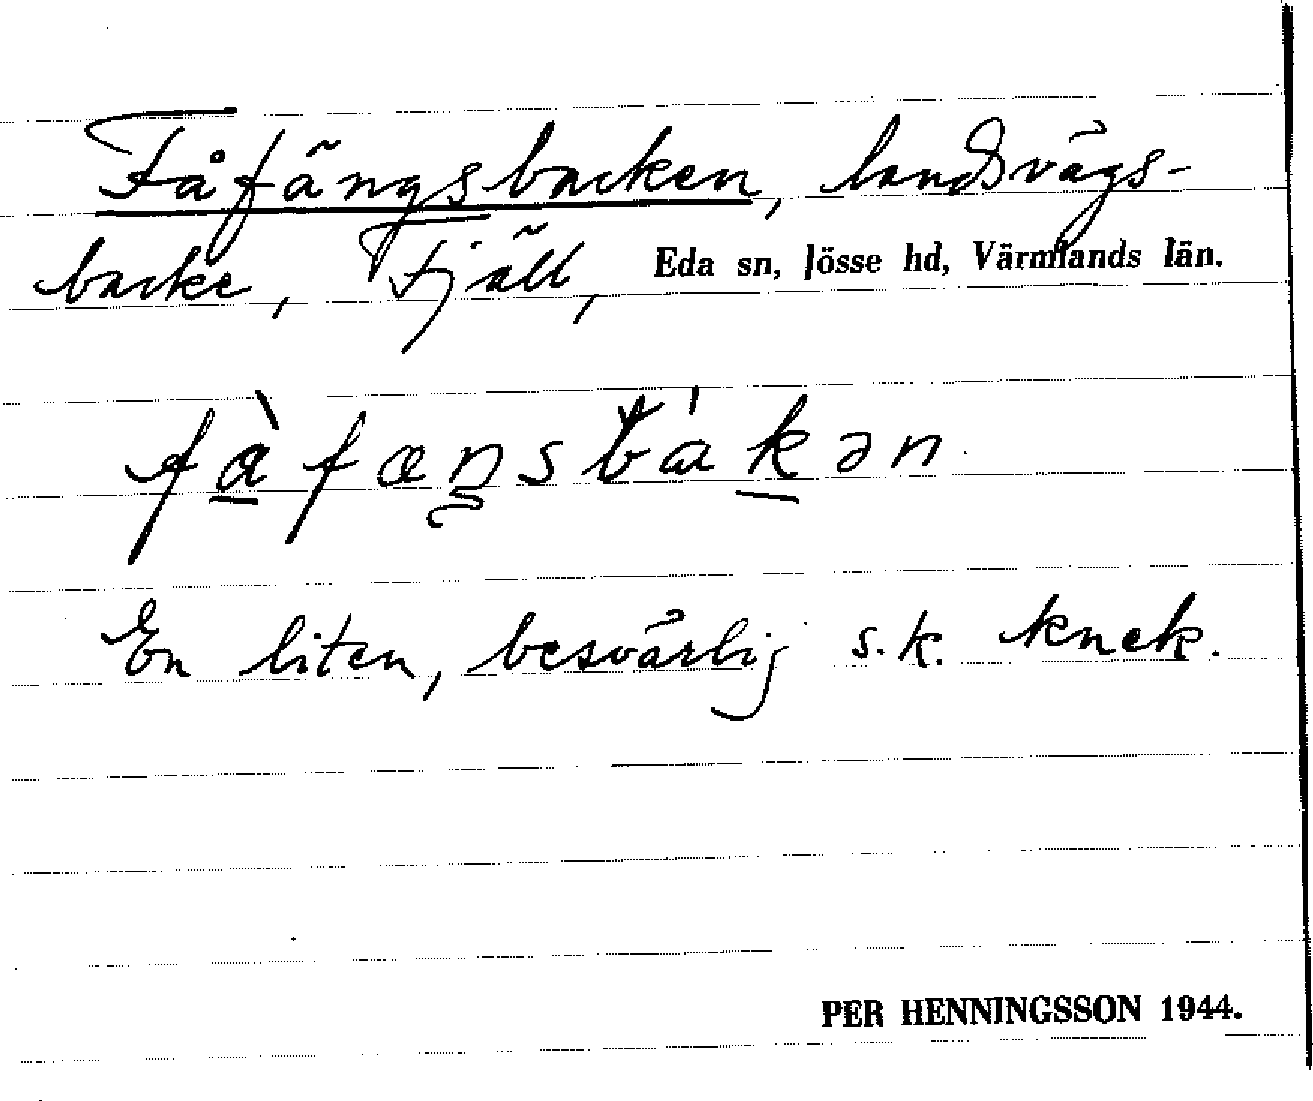 Fåfängsbacken, landsvägs-
backe, Fjäll, Eda sn, Jösse hd, Värmlands län.
fàfæŋsbákən
En liten, besvärlig s.k. knek.
PER HENNINGSSON 1944.